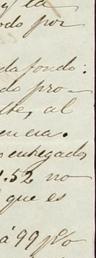 y la
odo por
da fondo:
do pro-
te, al
encia.
entregado
1.52 no
que es
á 99 p%